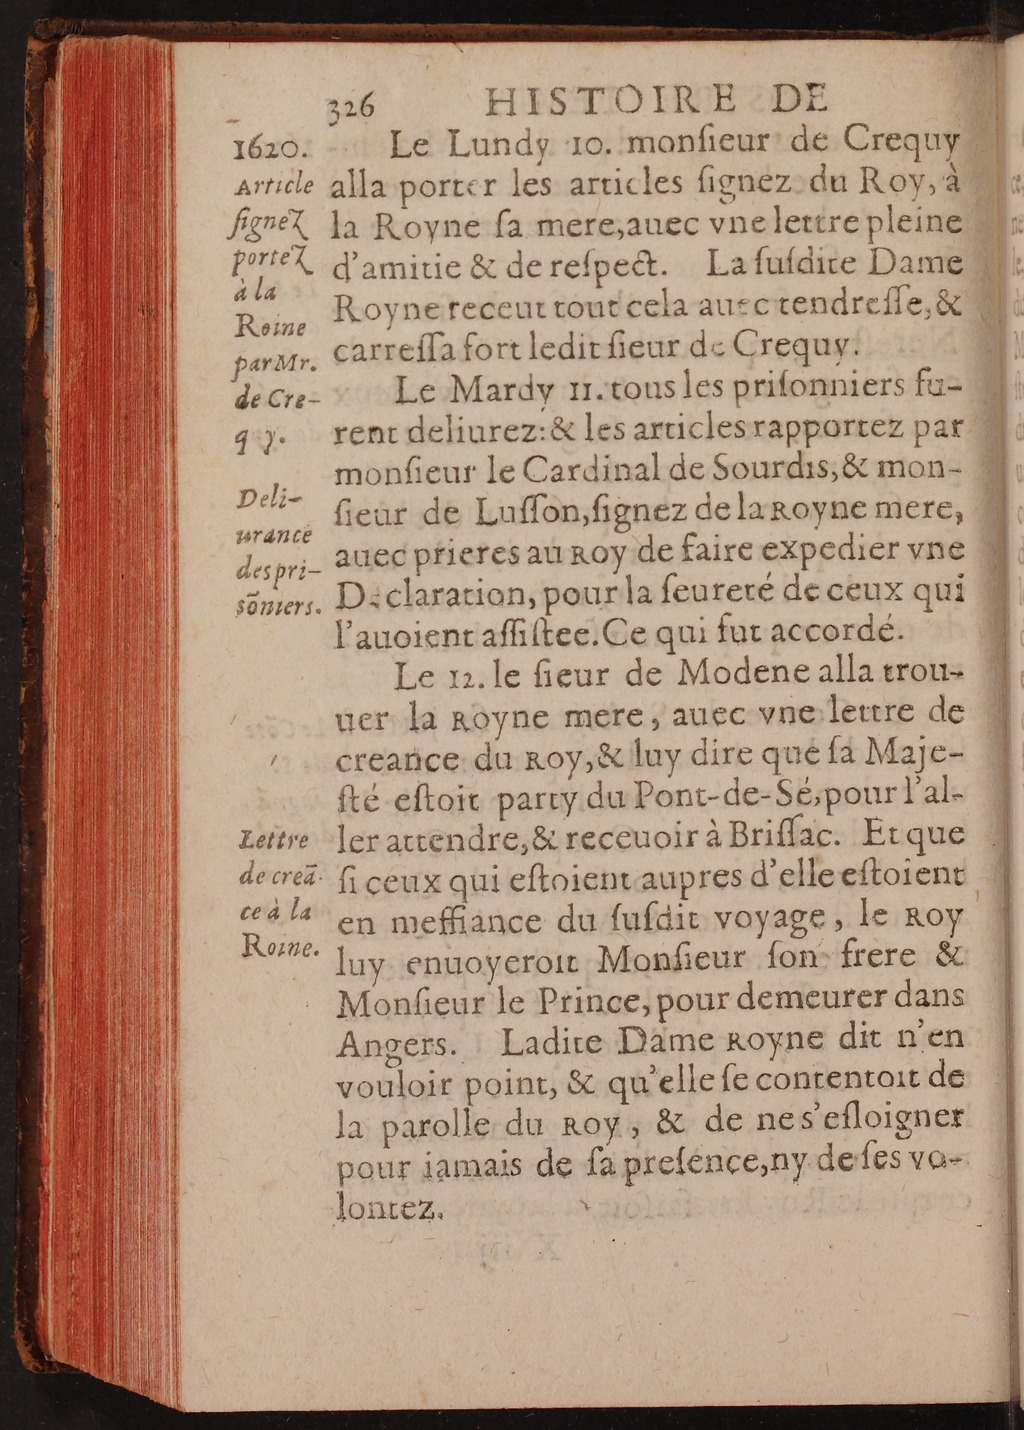 326 HISTOIRE DE
1620.
Article
ſignez
portez
à la
Reine
par Mr.
de Cre-
q y.
Deli-
urance
des pri-
sōniers.
Lettre
de creā-
ce à la
Roine.
Le Lundy 10. monſieur de Crequy
alla porter les articles ſignez du Roy, à
la Royne ſa mere,auec vne lettre pleine
d'amitie & de reſpect. La ſuſdite Dame
Royne receut tout cela auec tendreſſe,&
carreſſa fort ledit ſieur de Crequy.
Le Mardy 11. tous les priſonniers fu-
rent deliurez:& les articles rapportez par
monſieur le Cardinal de Sourdis,& mon-
ſieur de Luſſon,ſignez de la Royne mere,
auec prieres au Roy de faire expedier vne
Declaration, pour la ſeureté de ceux qui
l'auoient aſſiſtee. Ce qui fut accordé.
Le 12. le ſieur de Modene alla trou-
uer la Royne mere, auec vne lettre de
creance du Roy,& luy dire que ſa Maje-
ſté eſtoit party du Pont-de-Sé,pour l'al-
ler attendre,& receuoir à Briſſac. Et que
ſi ceux qui eſtoient aupres d'elle eſtoient
en meffiance du ſuſdit voyage, le Roy
luy enuoyeroit Monſieur ſon frere &
Monſieur le Prince, pour demeurer dans
Angers. Ladite Dame Royne dit n'en
vouloir point, & qu'elle ſe contentoit de
la parolle du Roy, & de ne s'eſloigner
pour iamais de ſa preſence,ny de ſes vo-
lontez.